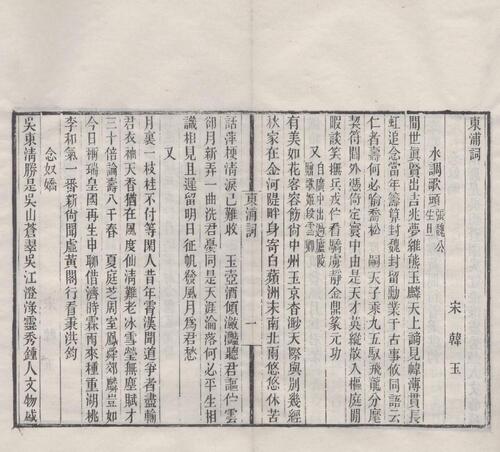 東浦詞
宋 韓 玉
水調歌頭 張魏公生日
間世眞賢出吉兆夢維熊玉麟天上謫見幃薄貫長
虹追念當年籌算封魏封留勳業千古事攸同語云
仁者壽何必偷喬松 嗣天子乘九五馭飛龍分麾
契符閫外憑倚定寰中由是天才英縱散入樞庭閒
暇談笑撫兵戎佇看驕虜靜金鼎篆元功
又 自廣中出過廬陵贈歌姬段雲卿
有美如花客容飭尙中州玉京杳渺天際與別幾經
秋家在金河隄畔身寄白蘋洲末南北兩悠悠休苦
東浦詞 一
話萍梗淸淚已難收 玉壺酒傾瀲灩聽君謳佇雲
卻月新弄一曲洗君憂同是天涯淪落何必平生相
識相見且遲留明日征帆發風月爲君愁
又
月裏一枝桂不付等閒人昔年霄漢聞道爭者盡輸
君衣袖天香猶在風度仙淸難老冰雪瑩無塵賦才
三十倍論壽八千春 夏庭芝周室鳳舜郊麟豈如
今日禰瑞皇國再生申聊借濟時霖雨來種重湖桃
李和氣一番新尙聞虛黃閣行看秉洪鈞
念奴嬌
吳東淸勝是吳山蒼翠吳江澄淥靈秀鍾人文物盛